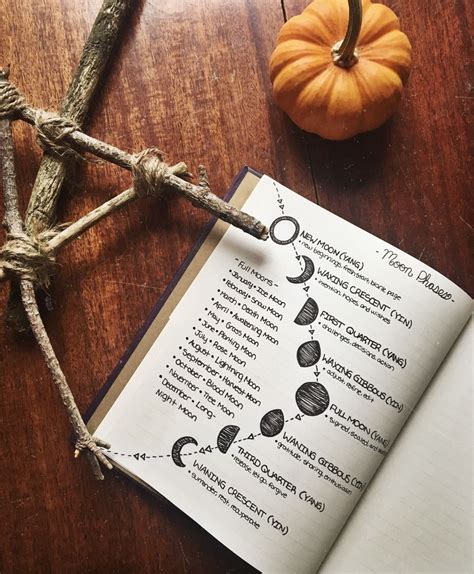 - Moon Phases -
NEW MOON (YANG)
• new beginnings, fresh start, blank page
WAXING CRESCENT (YIN)
• intention, hopes, and wishes
FIRST QUARTER (YANG)
• challenges, decisions, action
WAXING GIBBOUS (YIN)
• adjust, refine, edit
FULL MOON (YANG)
• signed, sealed, and
WANING GIBBOUS (YIN)
• gratitude, sharing, enthusiasm
THIRD QUARTER (YANG)
• release, let go, forgive
WANING CRESCENT (YIN)
• surrender, rest, recuperate
- Full Moons -
• January • Ice Moon
• February • Snow Moon
• March • Death Moon
• April • Awakening Moon
• May • Grass Moon
• June • Planting Moon
• July • Rose Moon
• August • Lightning Moon
• September • Harvest Moon
• October • Blood Moon
• November • Tree Moon
• December • Long
Night Moon